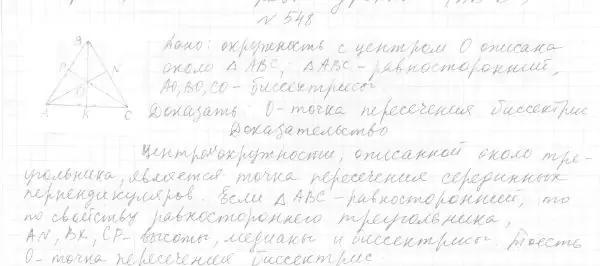 № 548
Дано: окружность с центром О описана
около △ ABC; △ ABC - равносторонний,
AO, BO, CO - биссектрисы
Доказать: О - точка пересечения биссектрис
Доказательство
B
P
N
O
A
K
C
Центром окружности, описанной около тре-
угольника, является точка пересечения серединных
перпендикуляров. Если △ ABC - равносторонний, то
по свойству равностороннего треугольника,
AN, BK, CP - высоты, медианы и биссектрисы. Тоесть
О - точка пересечения биссектрис.